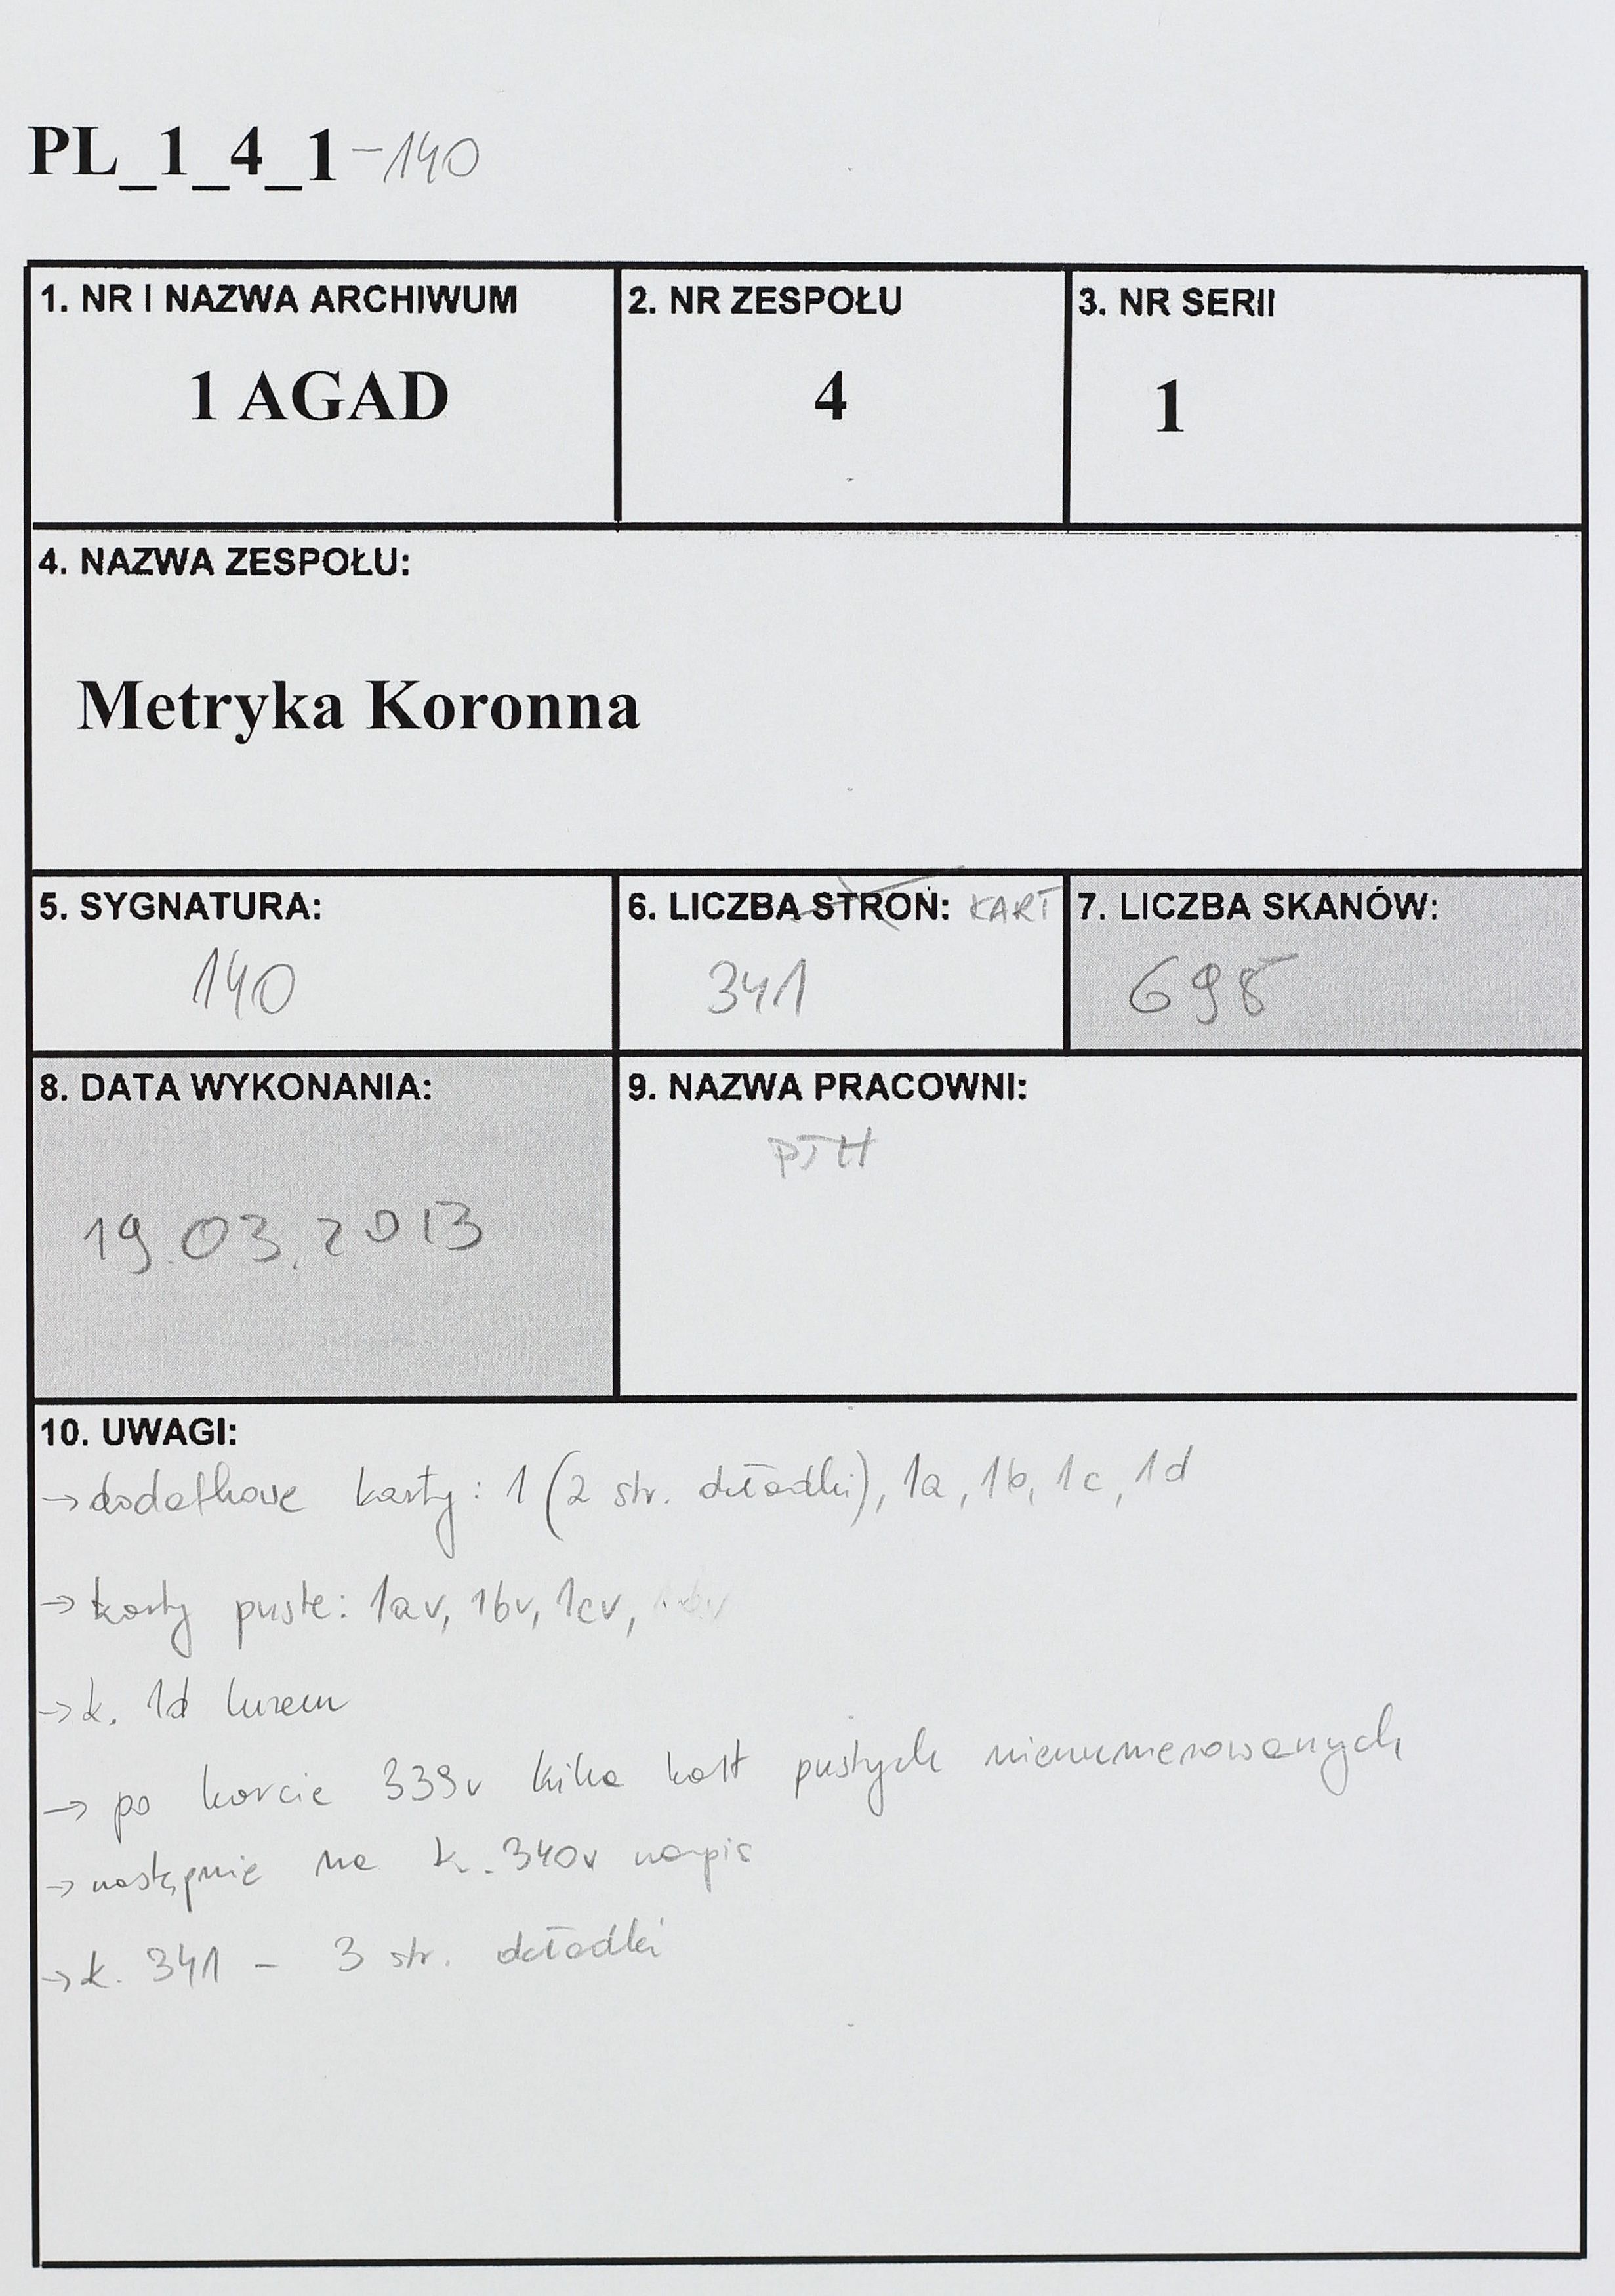 PL_1_4_1-140
1. NR I NAZWA ARCHIWUM
1 AGAD
2. NR ZESPOŁU
4
3. NR SERII
1
4. NAZWA ZESPOŁU:
Metryka Koronna
5. SYGNATURA:
140
6. LICZBA STRON: KART
341
7. LICZBA SKANÓW:
698
8. DATA WYKONANIA:
19.03.2013
9. NAZWA PRACOWNI:
PTH
10. UWAGI:
→ dodatkowe karty: 1 (2 str. okładki), 1a, 1b, 1c, 1d
→ karty puste: 1av, 1bv, 1cv,
→ k. 1d luzem
→ po karcie 339v kilka kart pustych nienumerowanych
→ następnie na k. 340v napis
→ k. 341 - 3 str. okładki